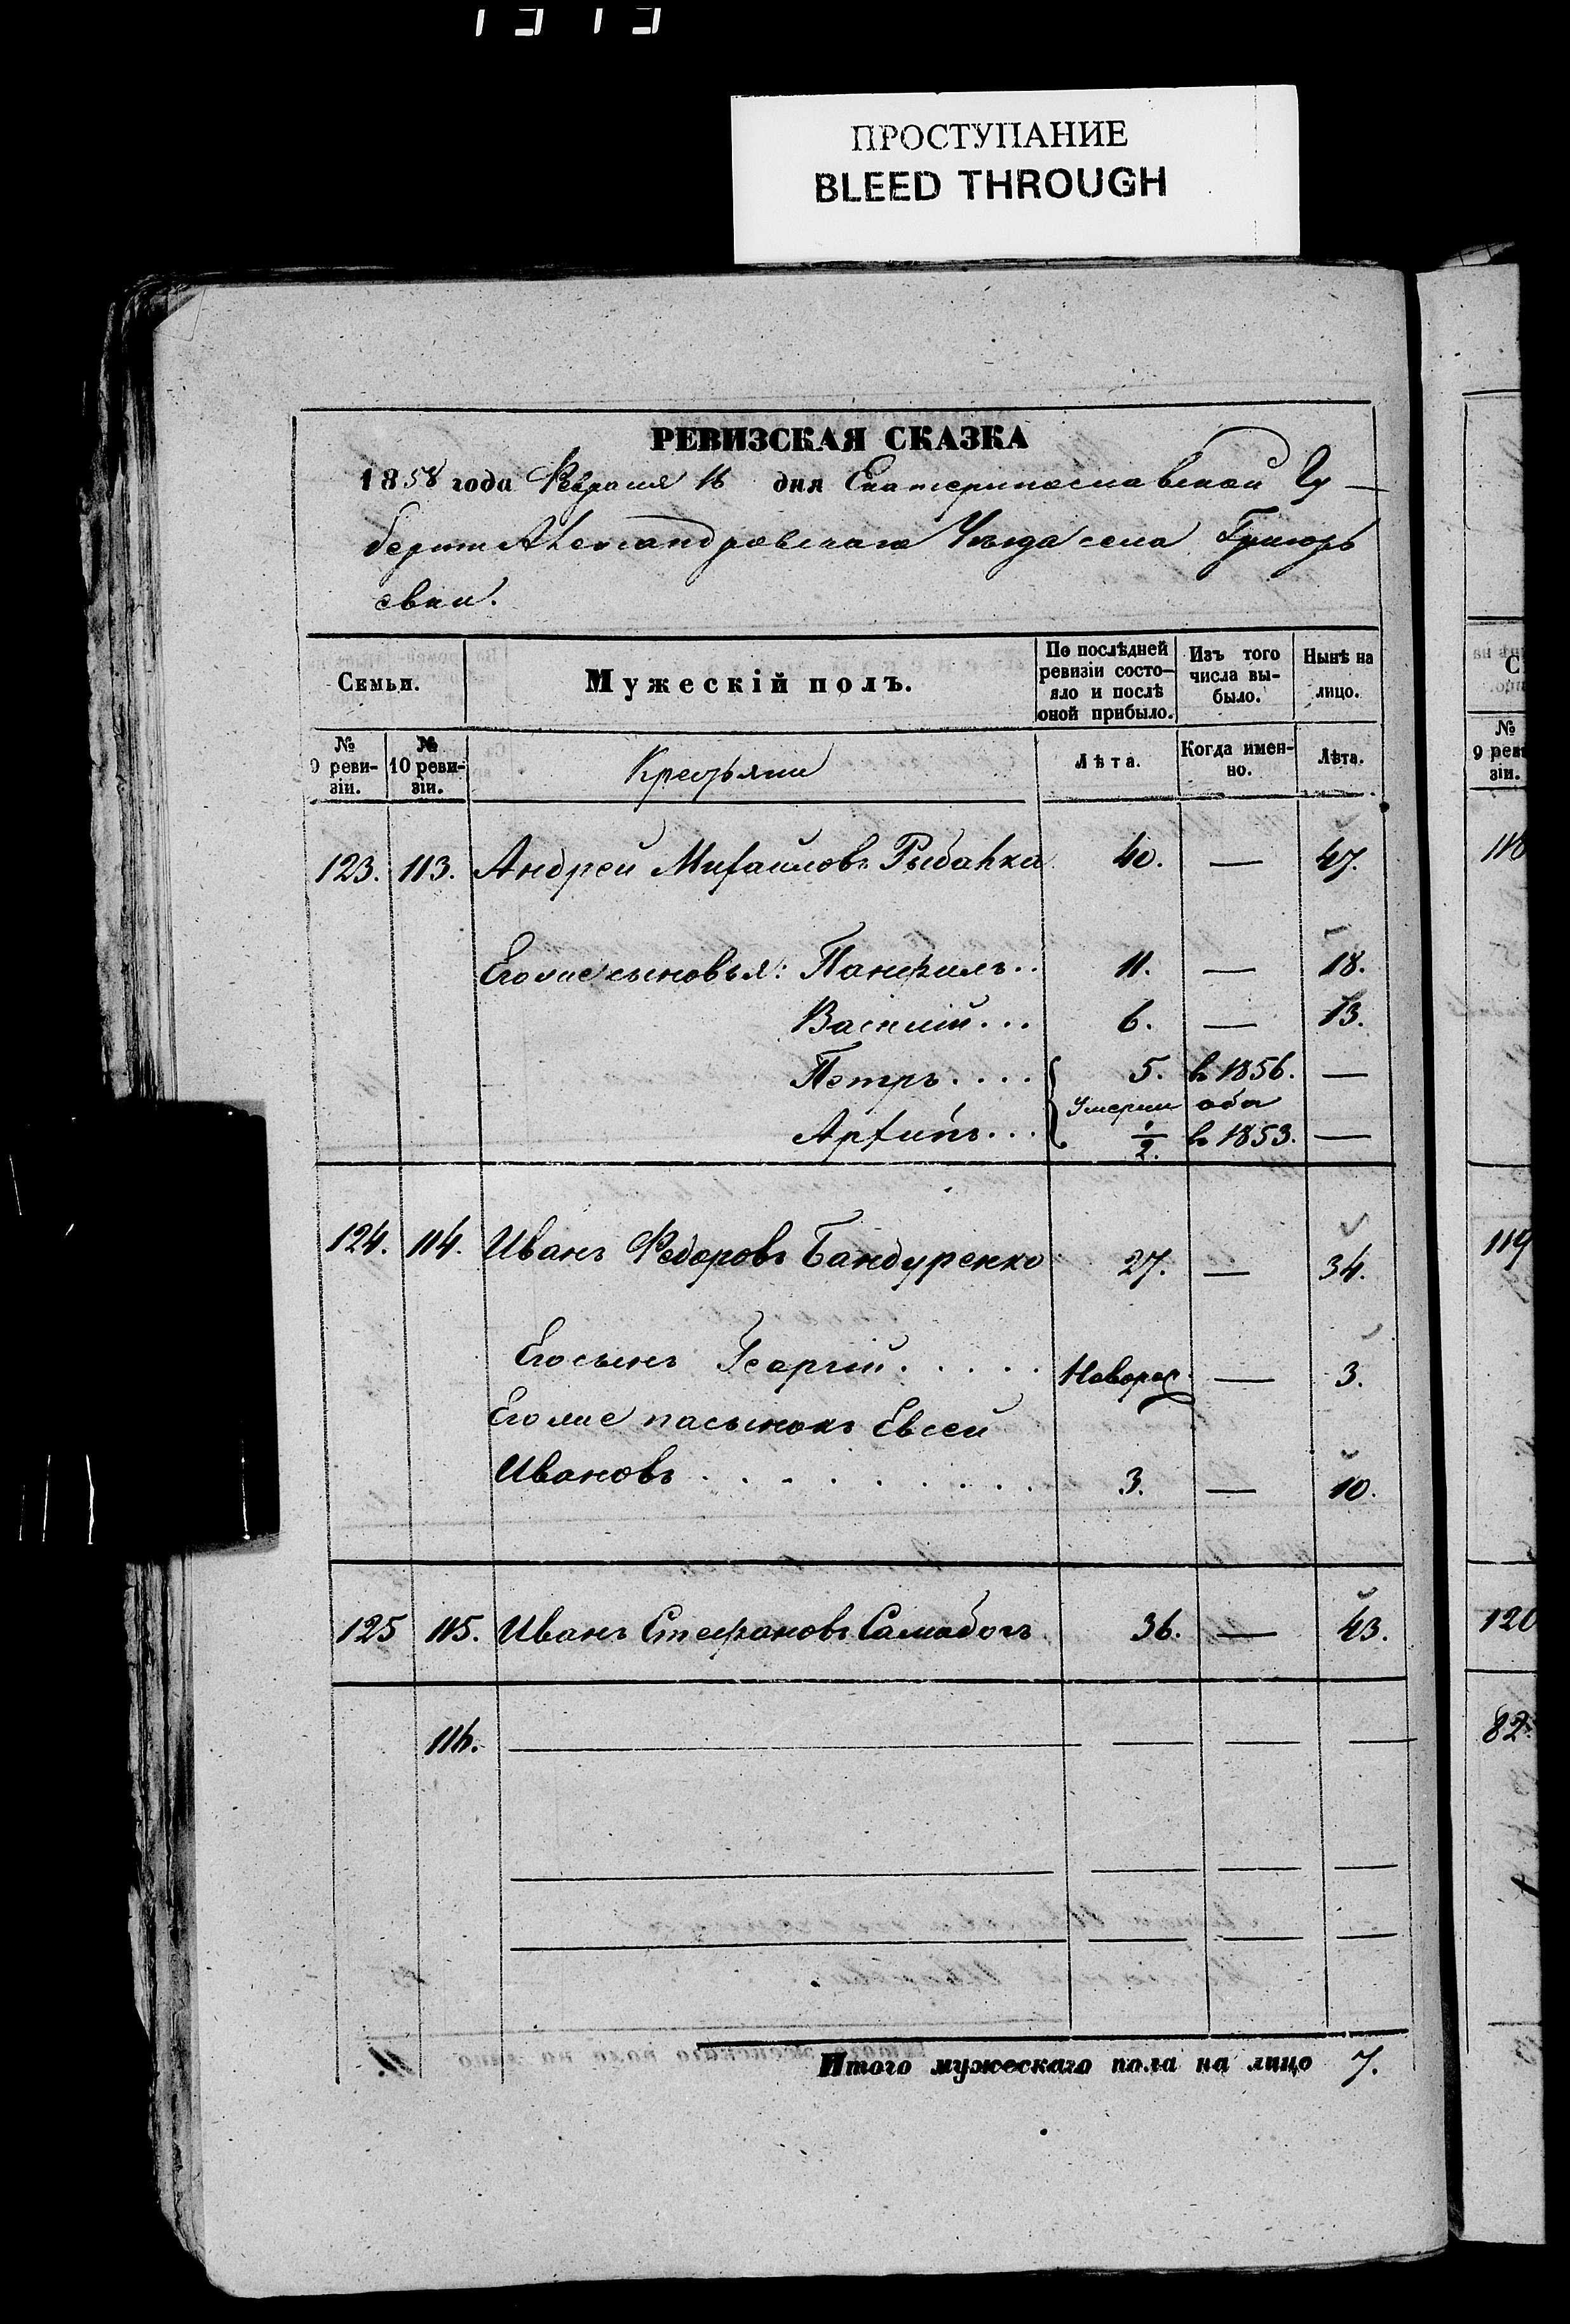 ПРОСТУПАНИЕ
BLEED THROUGH
РЕВИЗСКАЯ СКАЗКА
1858 года Февраля 16 дня Екатеринославской Гу-
берніи Александровскаго Уѣзда села Григорь
евки.
Семьи.
Мужескій полъ.
По послѣдней ревизіи состо-яло и послѣ оной прибыло.
Изъ того числа вы-было.
Нынѣ на лицо.
№ 9 реви-зіи.
№ 10 реви-зіи.
Крестьяни
Лѣта.
Когда имен-но.
Лѣта.
123. 113. Андрей Михайловъ Рыбалка 40. — 47.
Его же сыновья: Панфилъ.. 11. — 18.
Василій... 6. — 13.
Петръ.... 5. въ 1856. —
Умерли оба
Архипъ... 1/2. въ 1853. —
124. 114. Иванъ Федоровъ Бандуренко 27. — 34.
Его сынъ Георгій..... Новорож. — 3.
Его же пасынокъ Евсей
Ивановъ......... 3. — 10.
125 115. Иванъ Стефановъ Самабогъ 36. — 43.
116. — — — —
Итого мужескаго пола на лицо 7.
№
9 реви
зіи.
118
119
120
82